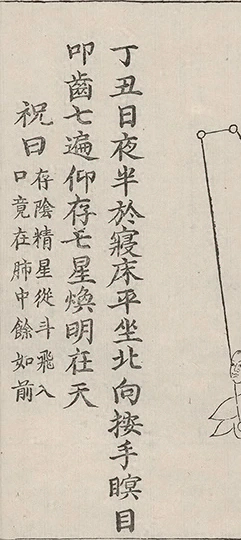 丁丑日夜半於寢床平坐北向按手瞑目
叩齒七遍仰存七星煥明在天
祝曰存陰精星從斗飛入
口竟在肺中餘如前